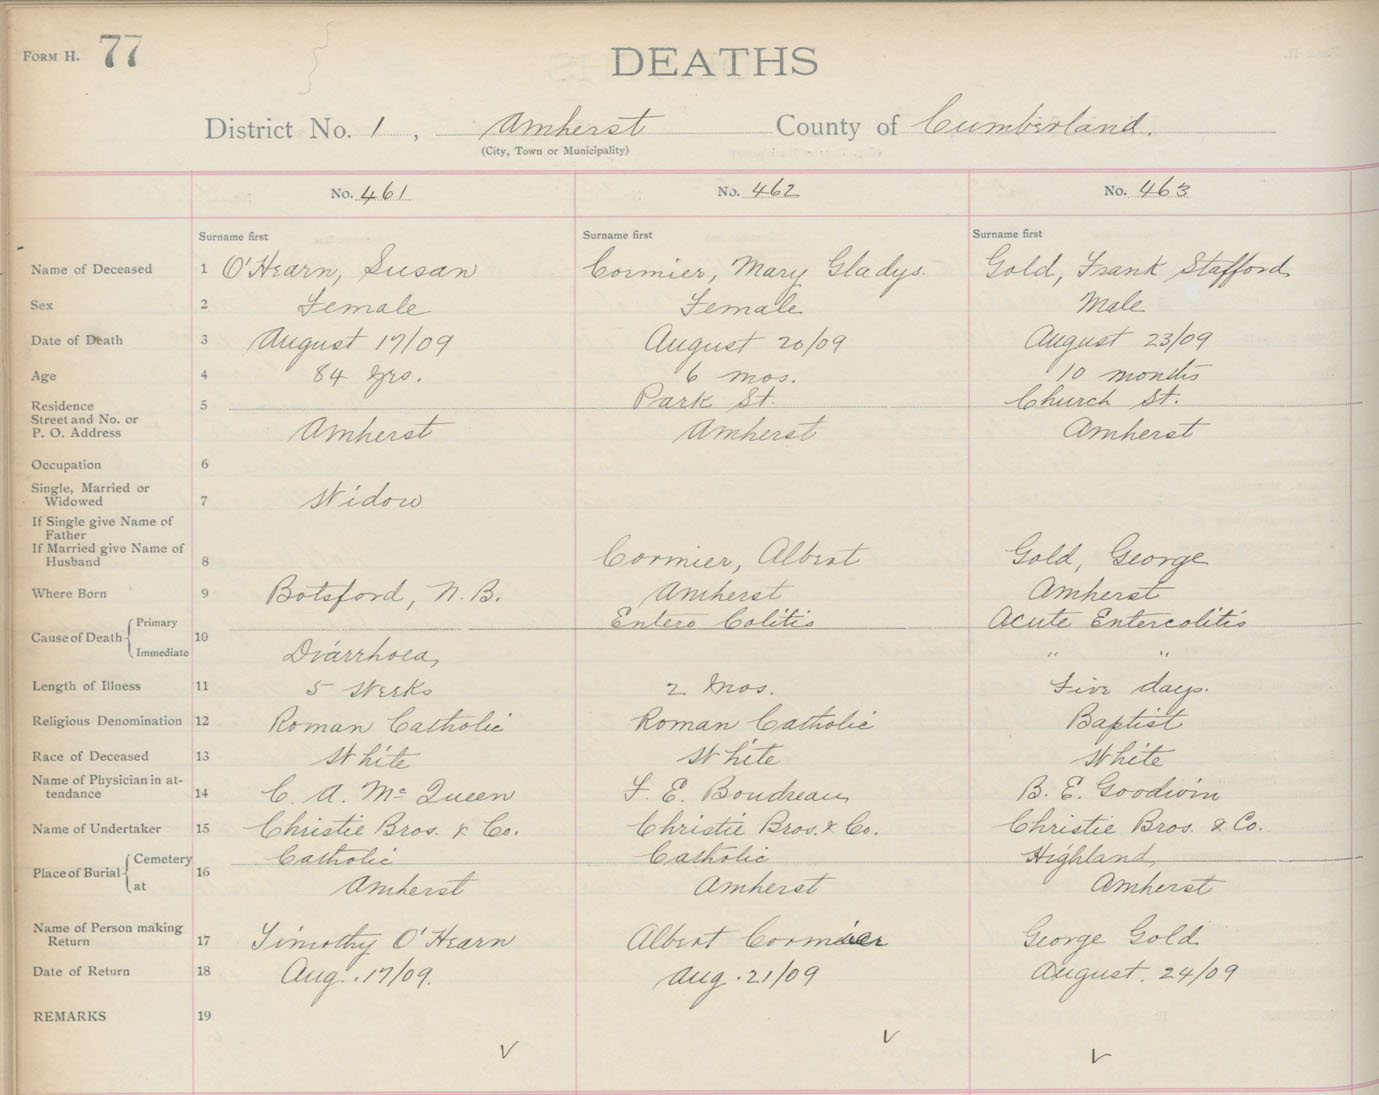 FORM H. 77
DEATHS
District No. 1, Amherst County of Cumberland.
(City, Town or Municipality)
No. 461 No. 462 No. 463
Surname first Surname first Surname first
Name of Deceased 1 O'Hearn, Susan Cormier, Mary Gladys. Gold, Frank Stafford
Sex 2 Female Female Male
Date of Death 3 August 17/09 August 20/09 August 23/09
Age 4 84 yrs. 6 mos. 10 months
Residence 5 Park St. Church St.
Street and No. or
P. O. Address Amherst Amherst Amherst
Occupation 6
Single, Married or
Widowed 7 Widow
If Single give Name of
Father
If Married give Name of
Husband 8 Cormier, Albert Gold, George
Where Born 9 Botsford, N.B. Amherst Amherst
Primary Entero Colitis Acute Entercolitis
Cause of Death 10
Immediate Diarrhoea, " "
Length of Illness 11 5 weeks 2 mos. Five days.
Religious Denomination 12 Roman Catholic Roman Catholic Baptist
Race of Deceased 13 White White White
Name of Physician in at-
tendance 14 C. A. Mc Queen F. E. Boudreau B. E. Goodwin
Name of Undertaker 15 Christie Bros. & Co. Christie Bros. & Co. Christie Bros. & Co.
Cemetery Catholic Catholic Highland
Place of Burial 16
at Amherst Amherst Amherst
Name of Person making
Return 17 Timothy O'Hearn Albert Cormier George Gold
Date of Return 18 Aug. 17/09. Aug. 21/09 August. 24/09
REMARKS 19